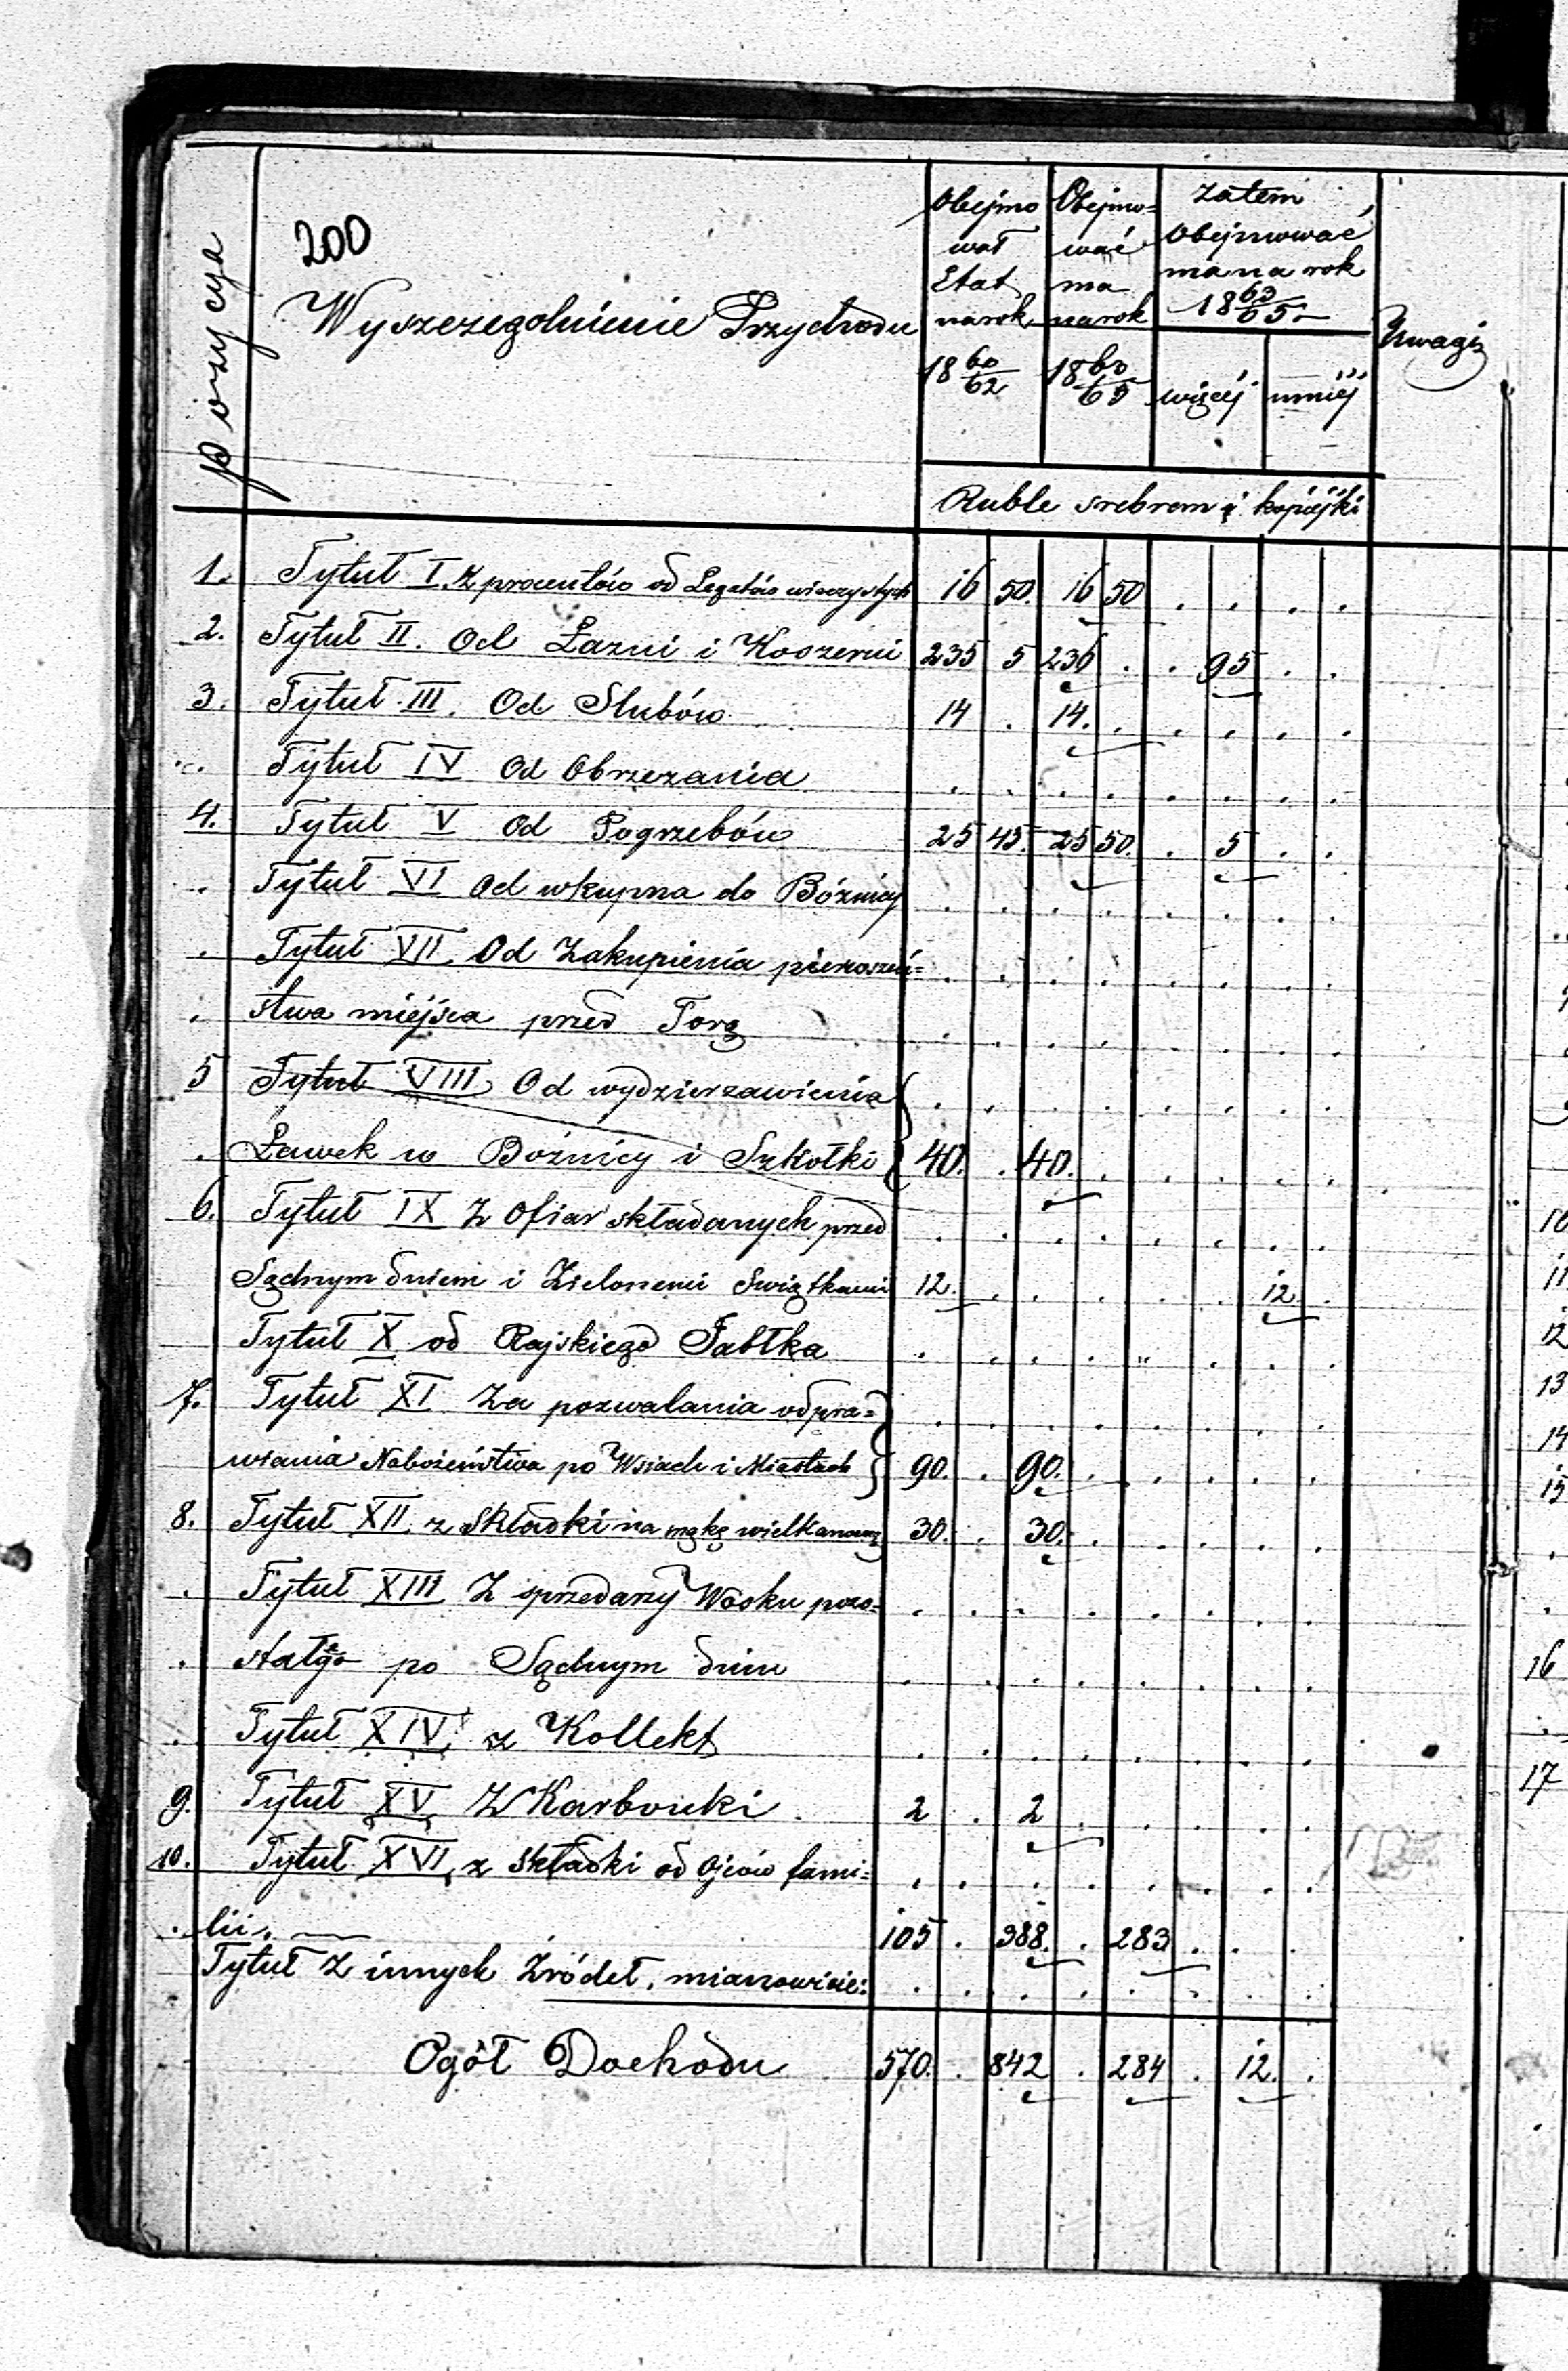 200
Pozycya
Wyszczegolnienie Przychodu
Obejmo
wał
Etat
na rok
18 60/62
Obejmo=
wać
ma
na rok
18 63/65
Zatem
Obejmować
ma na rok
18 63/65
więcej
mniej
Uwagi
Ruble srebrem i kopiejki
1. Tytuł I. z procentów od Legatów wieczystych 16 50. 16 50 . . . .
2. Tytuł II. Od Łazni i Koszerni 235 5 236 . . 95 . .
3. Tytuł III. Od Slubów 14 . 14. . . . . .
Tytuł IV Od Obrzezania . . . . . . . .
4. Tytuł V Od Pogrzebów 25 45. 25 50. . 5 . .
. Tytuł VI Od wkupna do Bóżnicy . . . . . . . .
. Tytuł VII. Od Zakupienia pierwszeń= . . . . . . . .
. stwa miejsca przed Torą . . . . . . . .
5 Tytuł VIII Od wydzierzawienia . . . . . . . .
. Ławek w Bóźnicy i Szkołki 40. . 40. . . . . .
6. Tytuł IX Z Ofiar składanych przed . . . . . . . .
Sądnym dniem i Zielonemi Swiątkami 12. . . . . . 12 .
Tytuł X od Rajskiego Jabłka . . . . " . . .
7. Tytuł XI Za pozwalania odpra= . . . . . . . .
wiania Nabożeństwa po Wsiach i Miastach 90. . 90. . . . . .
8. Tytuł XII z Składki na mąkę wielkanocną 30. . 30. . . . . .
. Tytuł XIII Z sprzedarzy Wosku pozo= . . . . . . . .
. stałego po Sądnym dniu . . . . . . . .
. Tytuł XIV z Kollekt . . . . . . . .
9. Tytuł XV Z Karbonki . 2 . 2 . . . . .
10. Tytuł XVI z składki od Ojców fami= . . . . . . . .
. lii. 105 . 388. . 283 . . .
Tytuł Z innych Źródeł, mianowicie: . . . . . . . .
Ogół Dochodu 570. . 842 . 284 . 12. .
10
11
12
13
14
15
16
17